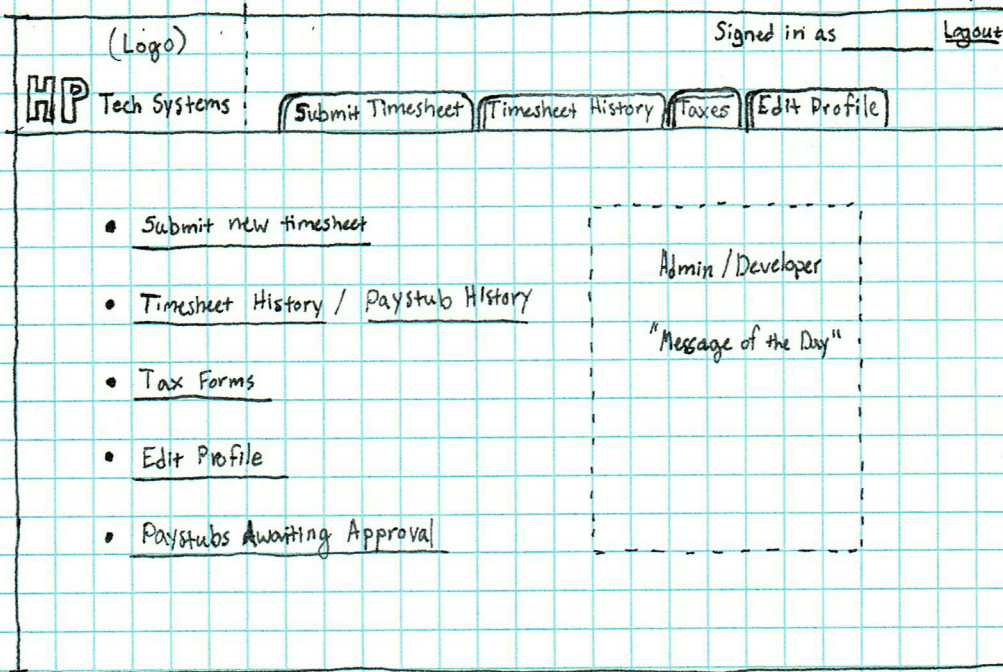 (Logo)
Signed in as ______ Logout
HP Tech Systems
Submit Timesheet Timesheet History Taxes Edit Profile
• Submit new timesheet
• Timesheet History / Paystub History
• Tax Forms
• Edit Profile
• Paystubs Awaiting Approval
Admin / Developer
"Message of the Day"